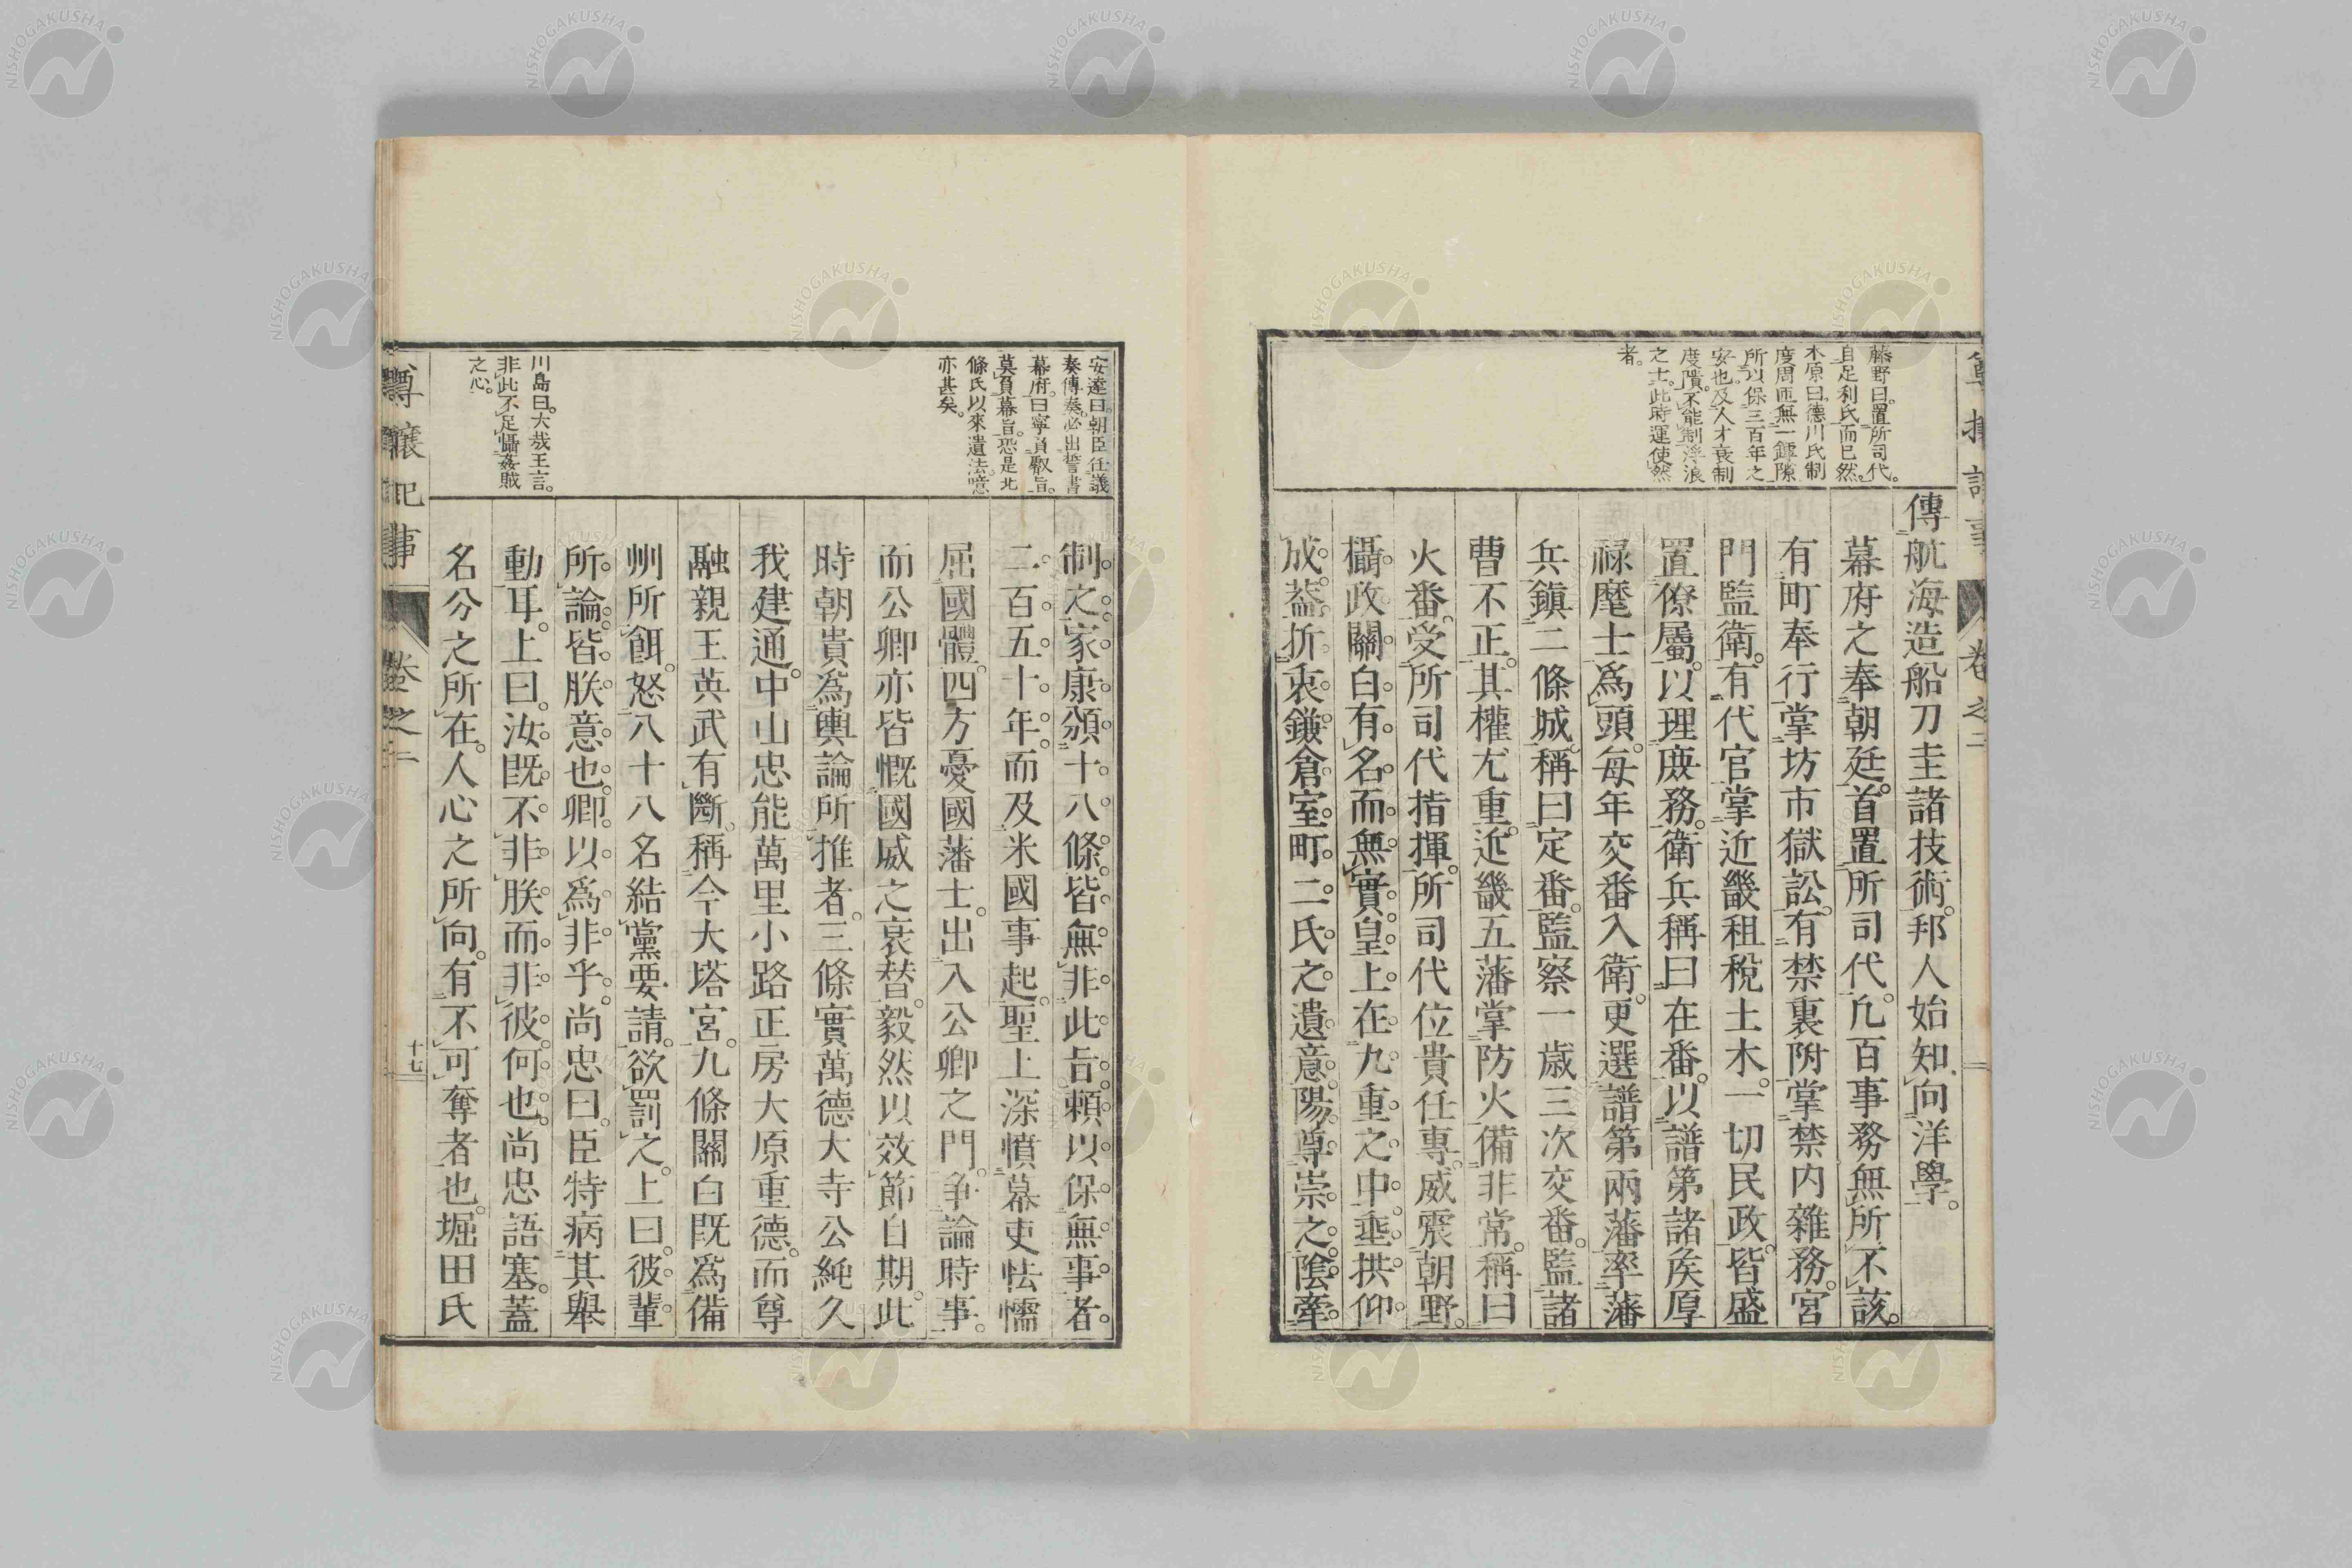 藤野曰。置所司代。
自足利氏而已然。
木原曰。德川氏制
度周匝無一罅隙
所以保三百年之
安也。及人才衰制
度隤。不能制浮浪
之士。此時運使然
者。
傳航海造船刀圭諸技術。邦人始知向洋學。
幕府之奉朝廷。首置所司代。凡百事務無所不該。
有町奉行掌坊市獄訟。有禁裏附掌禁内雜務。宮
門監衛。有代官掌近畿租稅土木。一切民政。皆盛
置僚屬。以理庶務。衛兵稱曰在番。以譜第諸侯厚
祿麾士爲頭。每年交番入衛。更選譜第兩藩率藩
兵鎭二條城。稱曰定番。監察一歲三次交番。監諸
曹不正。其權尤重。近畿五藩掌防火備非常。稱曰
火番。受所司代指揮。所司代位貴任專。威震朝野。
攝政關白有名而無實。皇上在九重之中垂拱仰
成。葢折衷鎌倉室町二氏之遺意。陽尊崇之。陰牽
卷之二
安達曰。朝臣任議
奏傳奏。必出誓書
幕府。曰寧負叡旨。
莫負幕旨。恐是北
條氏以來遺法。噫
亦甚矣。
川島曰。大哉王言。
非此不足懾姦賊
之心。
制之。家康頒十八條。皆無非此旨。賴以保無事者。
二百五十年。而及米國事起。聖上深憤幕吏怯懦
屈國體。四方憂國藩士。出入公卿之門。爭論時事。
而公卿亦皆慨國威之衰替。毅然以效節自期。此
時朝貴爲輿論所推者。三條實萬德大寺公純久
我建通。中山忠能萬里小路正房大原重德。而尊
融親王英武有斷。稱今大塔宮。九條關白既爲備
州所餌。怒八十八名結黨要請。欲罰之。上曰。彼輩
所論皆朕意也。卿以爲非乎。尚忠曰。臣特病其舉
動耳。上曰。汝既不非朕。而非彼何也。尚忠語塞。蓋
名分之所在。人心之所向。有不可奪者也。堀田氏
尊攘記事
卷之二
十七